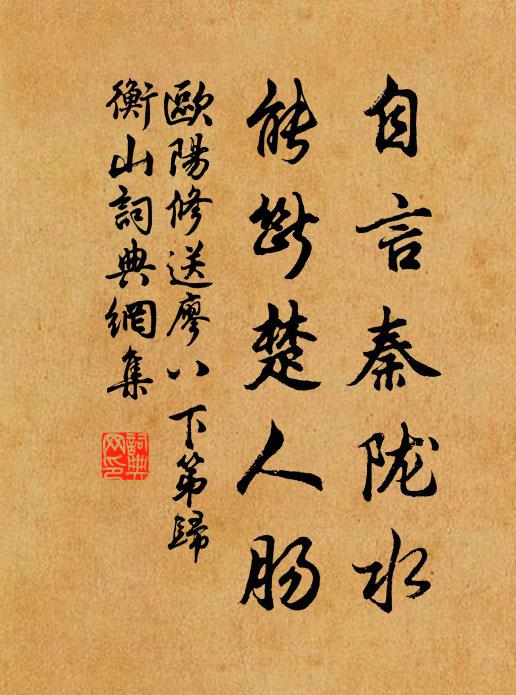 自言秦陇水
能斷楚人肠
歐陽修送廖八下第歸
衡山詞典網集
詞典网印